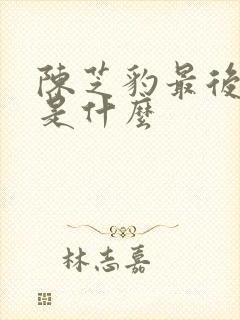 陳芝豹最後
是什麼
林志嘉